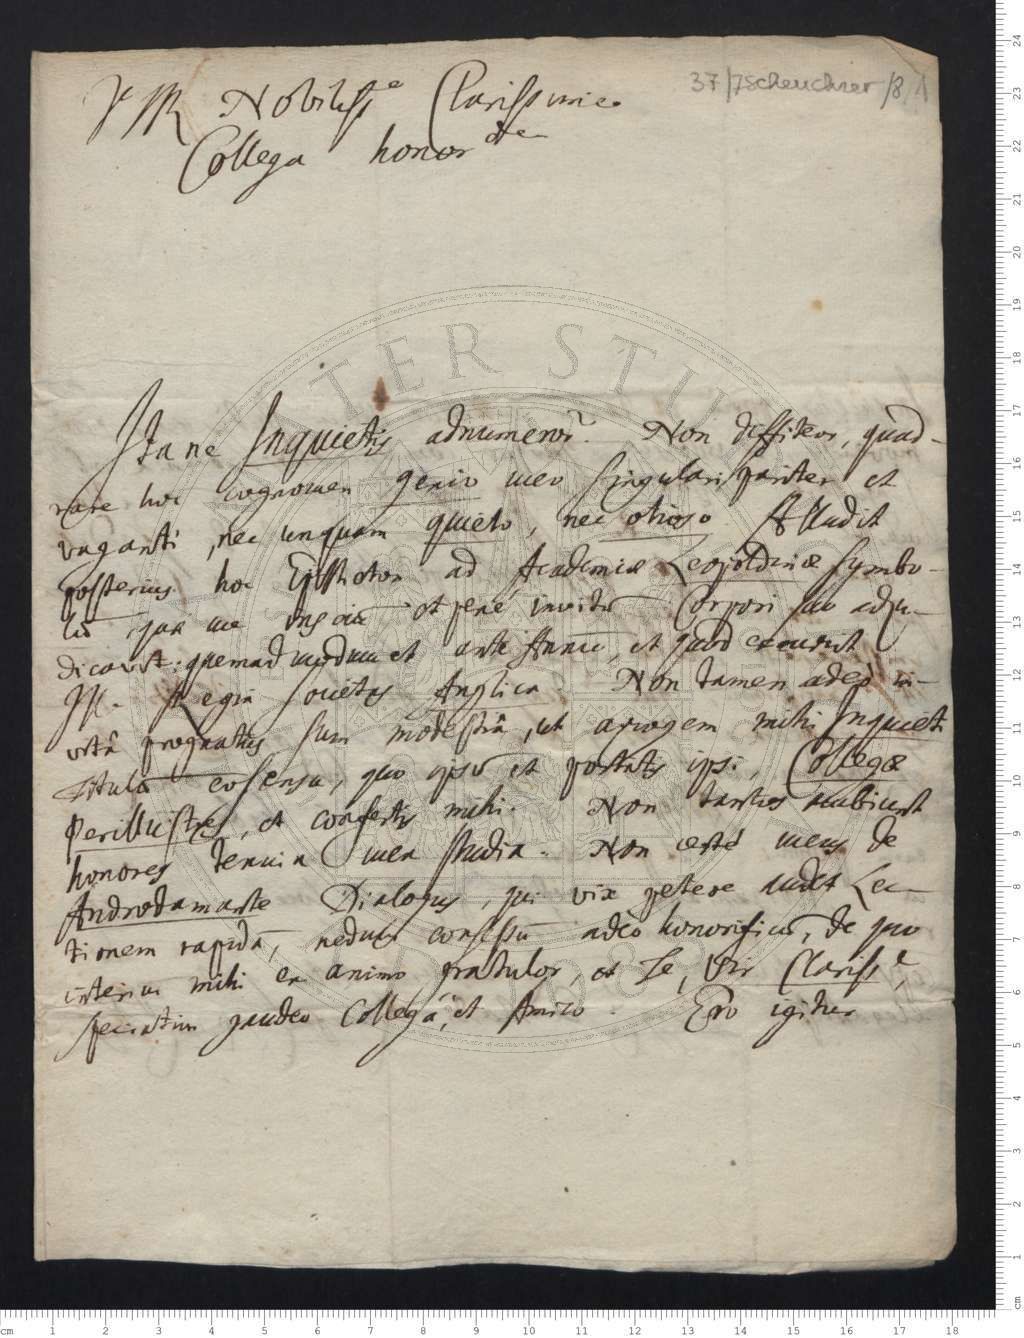 37/Jscheuchzer/8/1
Nobiliss.e Clarissime
Collega honor.de
Itane Inquietis adnumeror? Non diffiteor, quad-
rare hoc cognomen genio meo singulari pariter et
vaganti, nec unquam quieto, nec otioso. Alludit
posterius hoc Epitheton ad Academiæ Leopoldinæ Symbo-
lū quæ me insciū et penè invitū Corpori suo adju-
dicavit: quemadmodum et ante Annū, et quod excurrit
Ill. Regia Societas Anglica. Non tamen adeò in-
urbā prognatus sum modestiâ, ut Inquieti
titulū eo sensu, quo ipsū et portatis ipsi, Collegæ
Perillustres, et confertis mihi. Non tantos ambiunt
honores tenuia mea studia. Non certè meus de
Androdamante Dialogus, qui vix petere audet Lec-
tionem rapidā, nedum consessū adeò honorificū, de quo
interim mihi ex animo gratulor, et Te, Vir Clariss.e,
speciatim gaudeo Collegâ, et Amico. Ero igitur